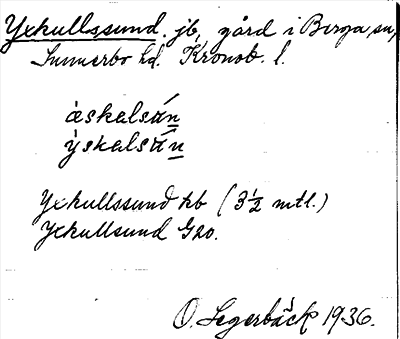 Yxkullssund. jb, gård i Berga sn,
Sunnerbo hd. Kronob. l.
ỳskalsún
Yxkullssund hb (3½ mtl.)
Yxkullsund G20.
O. Segerbäck 1936.